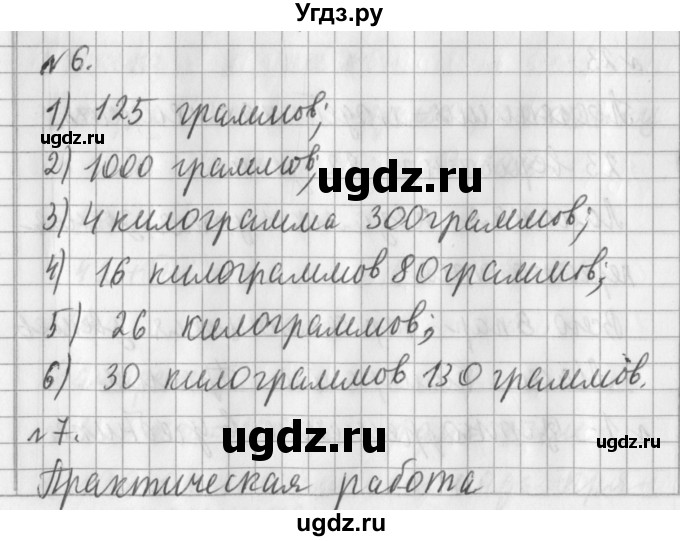 Угдз.ру
№6.
1) 125 граммов;
ugdz.ru
ugdz.ru
2) 1000 граммов;
ugdz.ru
3) 4 килограмма 300граммов;
4) 16 килограммов 80граммов;
ugdz.ru
5) 26 килограммов;
6) 30 килограммов 130 граммов.
ugdz.ru
ugdz.ru
№7.
ugdz.ru
Практическая работа
ugdz.ru